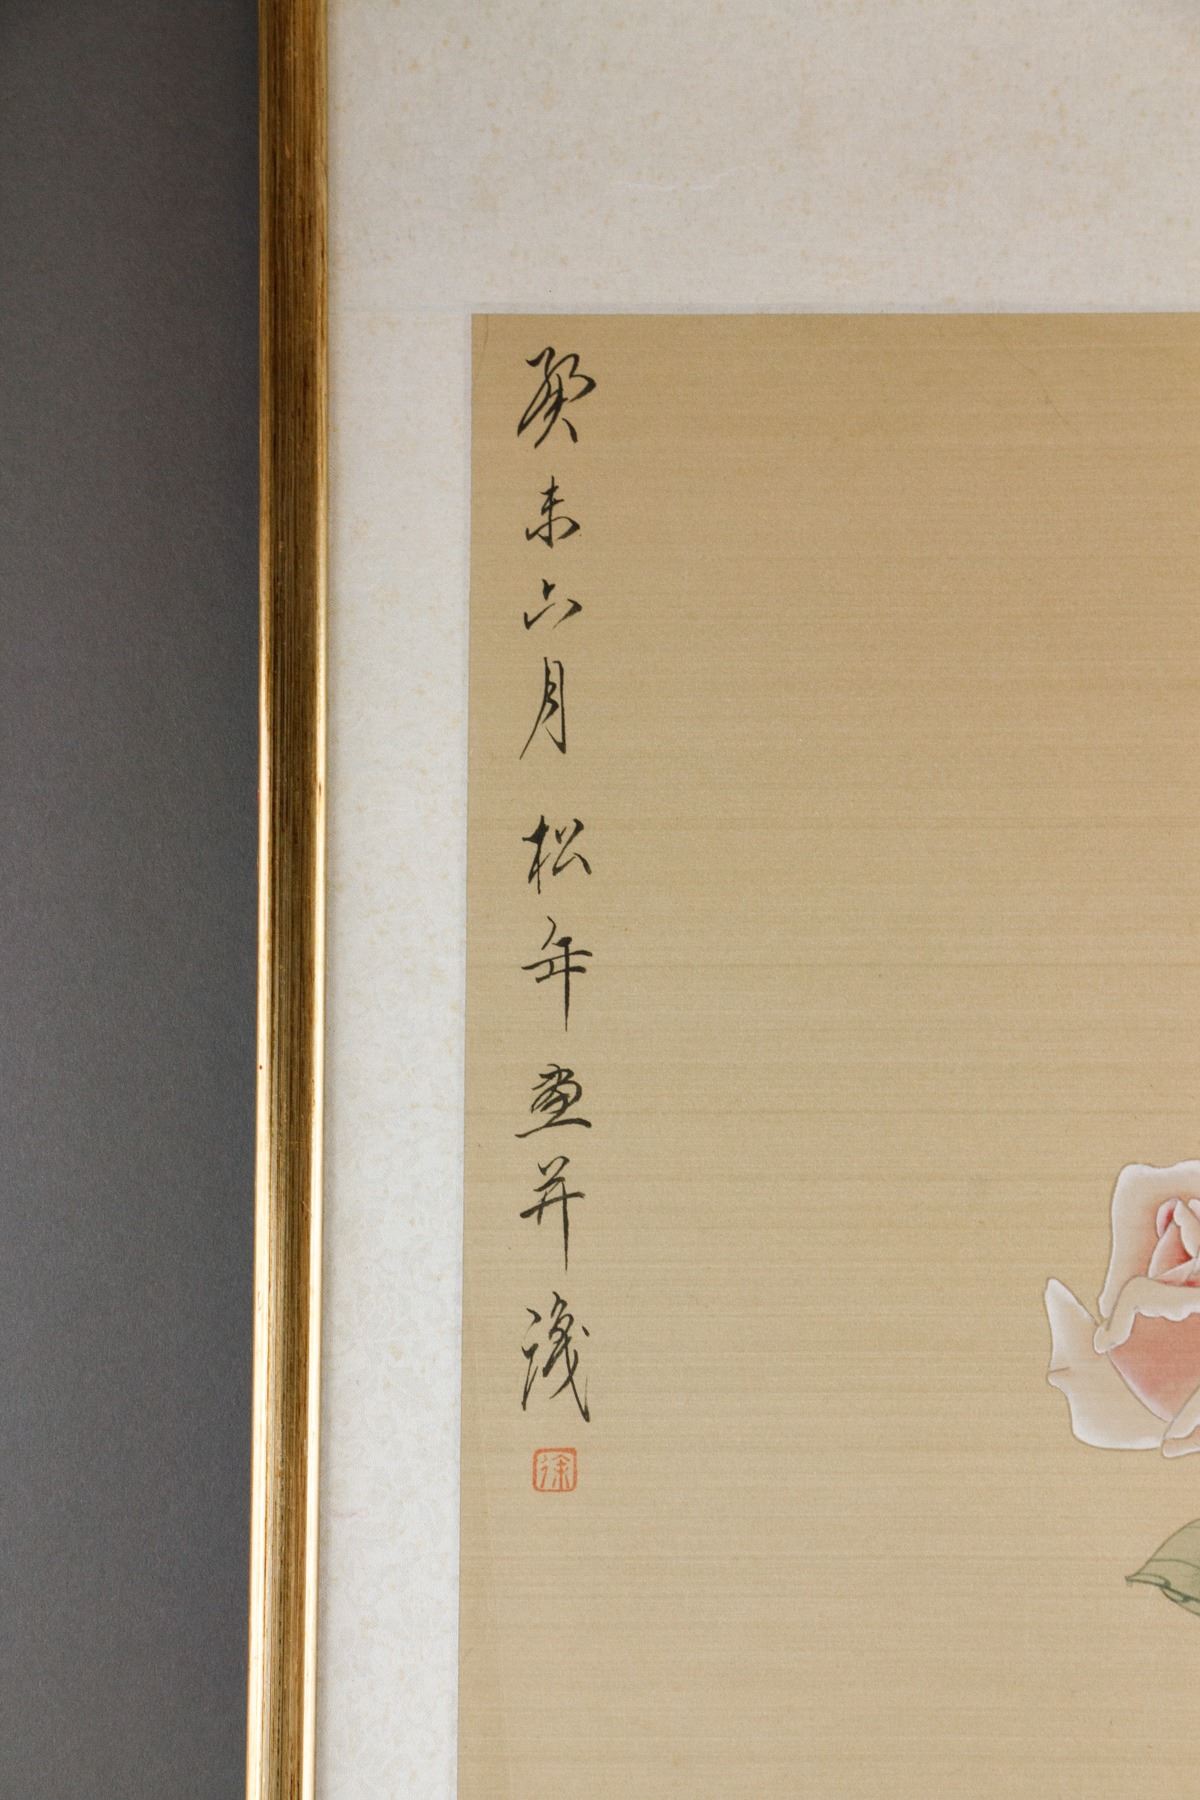 癸未六月 松年画并識
徐